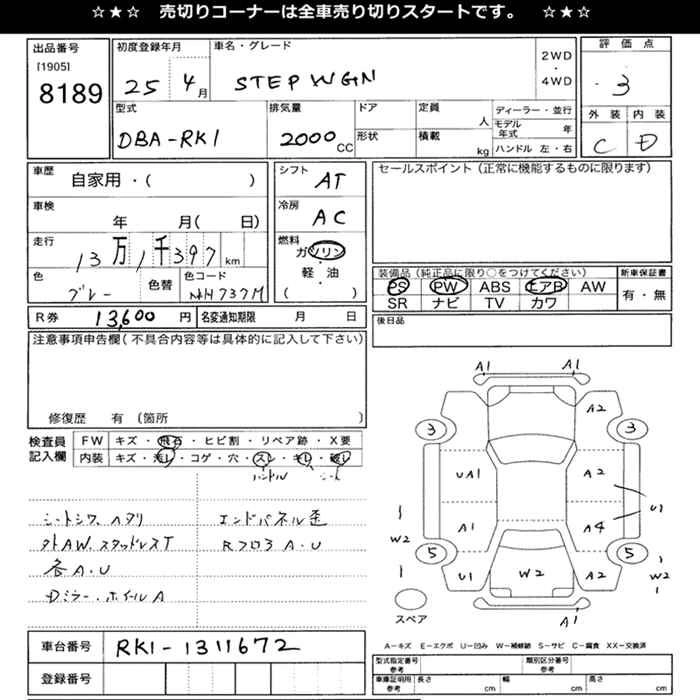 ☆★☆ 売切りコーナーは全車売り切りスタートです。 ☆★☆
出品番号
[1905]
8189
初度登録年月
25 4月
車名・グレード
STEP WGN
2WD
・
4WD
評価点
3
外装 内装
C D
型式
DBA-RK1
排気量
2000 CC
ドア
形状
定員
人
積載
kg
ディーラー・並行
モデル年式 年
ハンドル 左・右
車歴
自家用・( )
車検
年 月( 日)
走行
13万1千397 km
色
グレー
色替
色コード
NH737M
シフト
AT
冷房
AC
燃料
ガソリン
・
軽油
( )
セールスポイント(正常に機能するものに限ります)
装備品(純正品に限り○をつけてください)
PS PW ABS エアB AW
SR ナビ TV カワ
新車保証書
有・無
R券 13,600 円
名変通知期限 月 日
後日品
注意事項申告欄(不具合内容等は具体的に記入して下さい)
修復歴 有 (箇所 )
検査員記入欄
FW キズ・飛石・ヒビ割・リペア跡・X要
内装 キズ・汚レ・コゲ・穴・スレ・キレ・破レ
ハンドル シート
シートシワ、ヘタリ
外AW、スタッドレスT
各A・U
Dミラー・ホイルA
エンドパネル歪
RフロアA・U
A1 A1
A2
3 3
UA1 A2
U1
A1 A4
W2
5 5
U1 W2 A2
W2
A1
スペア
A-キズ E-エクボ U-凹み W-補修跡 S-サビ C-腐食 XX-交換済
車台番号 RK1-1311672
登録番号
型式指定番号 参考
類別区分番号 参考
車庫証明用 参考
長さ cm 幅 cm 高さ cm